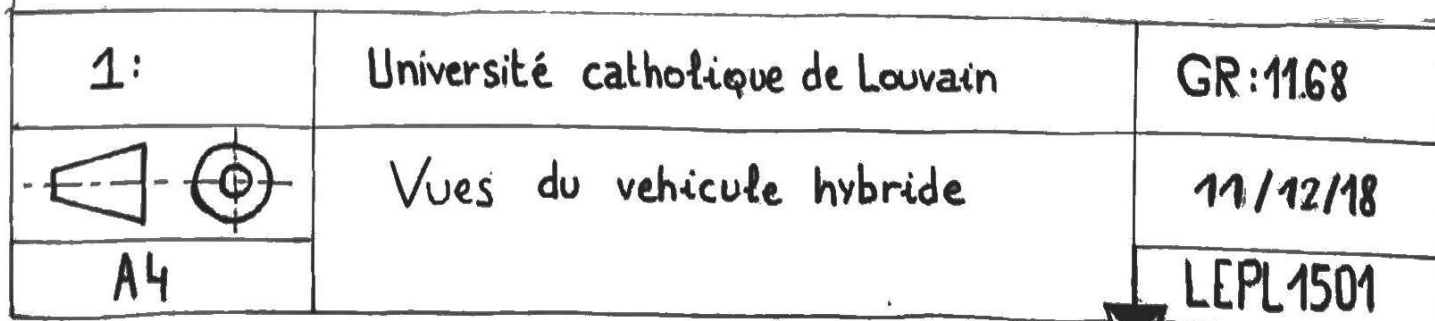 1:
Université catholique de Louvain
GR:11.68
Vues du vehicule hybride
11/12/18
A4
LEPL1501